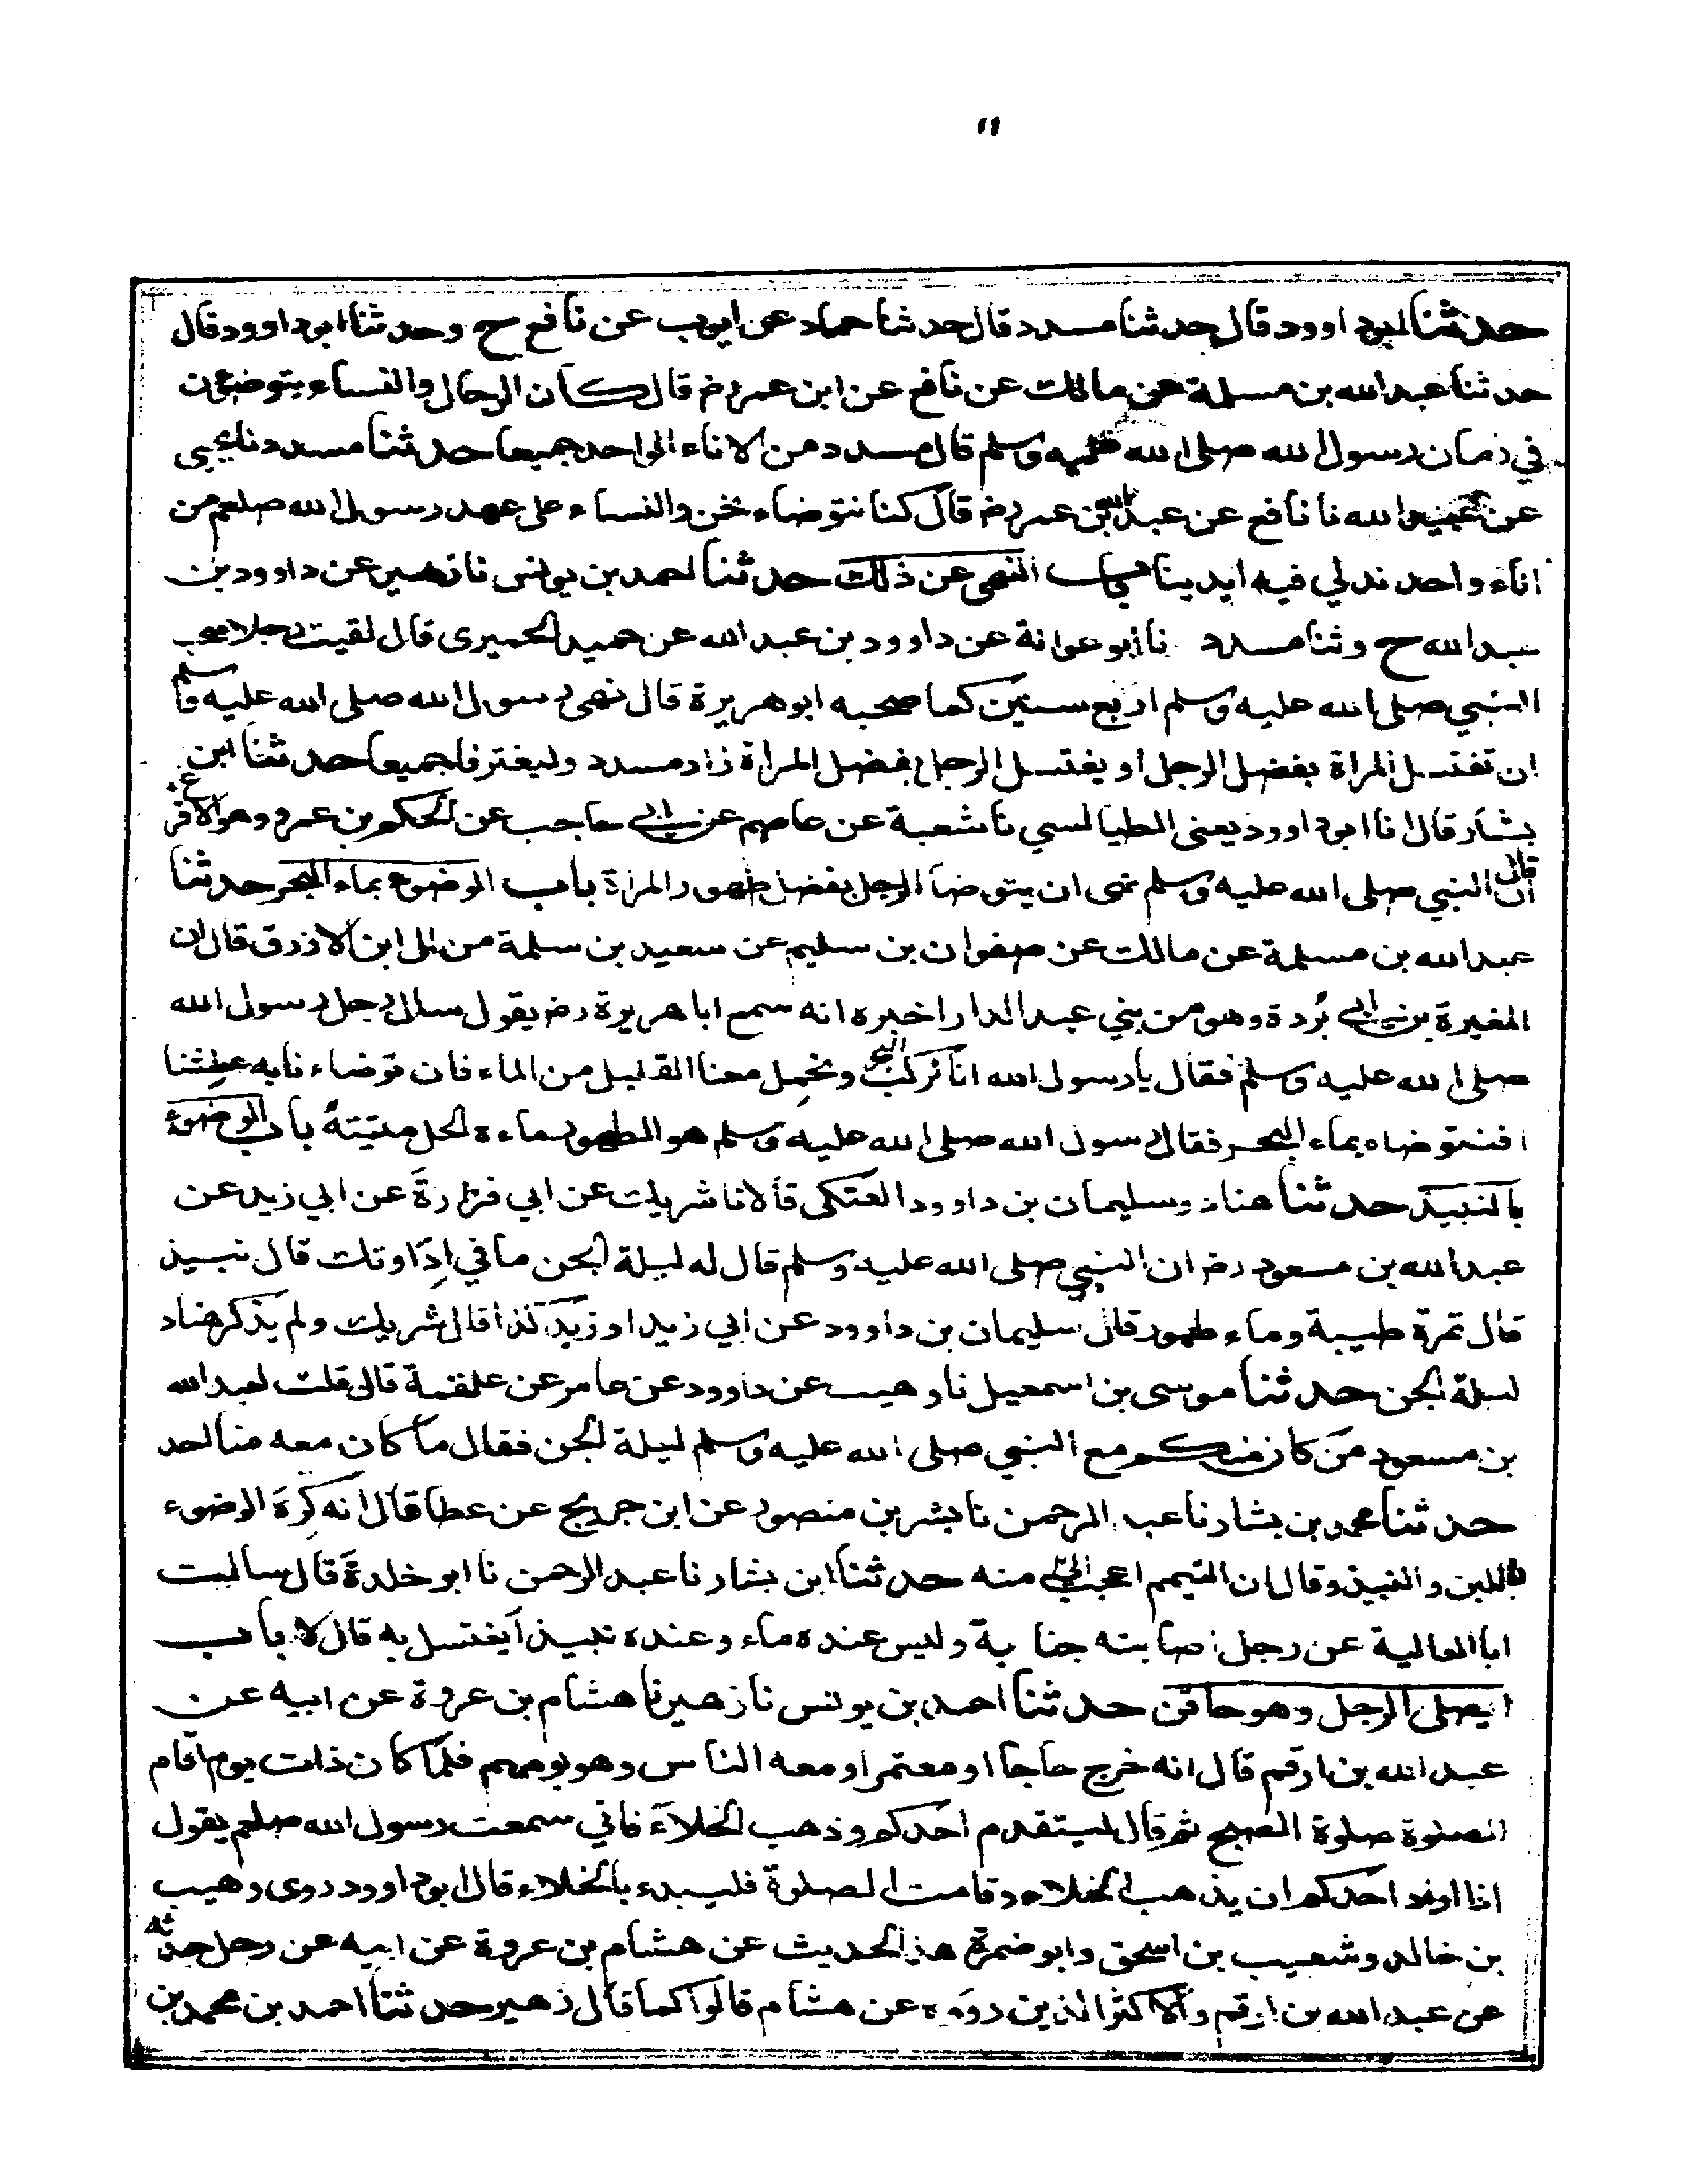 ١١
حدثنا ابوداوود قال حدثنا مسدد قال حدثنا حماد عن ايوب عن نافع ح وحدثنا ابوداوود قال
حدثنا عبدالله بن مسلمة عن مالك عن نافع عن ابن عمر رض قال كان الرجال والنساء يتوضؤن
في زمان رسول الله صلى الله عليه وسلم قال مسدد من الاناء الواحد جميعا حدثنا مسدد نا يحيى
عن عبيدالله نا نافع عن عبدالله بن عمر رض قال كنا نتوضاء نحن والنساء على عهد رسول الله صلعم من
اناء واحد ندلي فيه ايدينا باب النهي عن ذلك حدثنا احمد بن يونس نا زهير عن داوود بن
عبدالله ح وثنا مسدد نا أبوعوانة عن داوود بن عبدالله عن حميد الحميرى قال لقيت رجلا صحب
النبي صلى الله عليه وسلم اربع سنين كما صحبه ابوهريرة قال نهى رسول الله صلى الله عليه وسلم
ان تغتسل المراة بفضل الرجل او يغتسل الرجل بفضل المراة زاد مسدد وليغترفا جميعا حدثنا ابن
بشار قال انا ابوداوود يعنى الطيالسي نا شعبة عن عاصم عن ابي حاجب عن الحكم بن عمرو وهو الاقرع
قال ان النبي صلى الله عليه وسلم نهى ان يتوضأ الرجل بفضل طهور المراة باب الوضوء بماء البحر حدثنا
عبدالله بن مسلمة عن مالك عن صفوان بن سليم عن سعيد بن سلمة من ال ابن الازرق قال ان
المغيرة بن ابي بُردة وهو من بني عبدالدار اخبره انه سمع اباهريرة رض يقول سال رجل رسول الله
صلى الله عليه وسلم فقال يا رسول الله انا نركب البحر ونحمل معنا القليل من الماء فان توضاء نا به عطشنا
افنتوضاه بماء البحر فقال رسول الله صلى الله عليه وسلم هو الطهور ماءه الحل ميتته باب الوضوء
بالنبيذ حدثنا هناد وسليمان بن داوود العتكى قالا نا شريك عن ابي فزارة عن ابي زيد عن
عبدالله بن مسعود رض ان النبي صلى الله عليه وسلم قال له ليلة الجن ما في اِدَاوتك قال نبيذ
قال تمرة طيبة وماء طهور قال سليمان بن داوود عن ابي زيد او زيد كذا قال شريك ولم يذكر هناد
ليلة الجن حدثنا موسى بن اسمعيل نا وهيب عن داوود عن عامر عن علقمة قال قلت لعبدالله
بن مسعود من كان منكم مع النبي صلى الله عليه وسلم ليلة الجن فقال ما كان معه منا احد
حدثنا محمد بن بشار نا عبد الرحمن نا بشر بن منصور عن ابن جريج عن عطا قال انه كره الوضوء
باللبن والنبيذ وقال ان التيمم اعجب الي منه حدثنا ابن بشار نا عبدالرحمن نا ابوخلدة قال سالت
اباالعالية عن رجل اصابته جنابة وليس عنده ماء وعنده نبيذ أيغتسل به قال لا باب
ايصلى الرجل وهو حاقن حدثنا احمد بن يونس نا زهير نا هشام بن عروة عن ابيه عن
عبدالله بن ارقم قال انه خرج حاجا او معتمرا ومعه الناس وهو يومهم فلما كان ذات يوم اقام
الصلوة صلوة الصبح ثم قال ليتقدم احدكم وذهب الخلاء فاني سمعت رسول الله صلعم يقول
اذا اراد احدكم ان يذهب الخلاء وقامت الصلوة فليبدء بالخلاء قال ابوداوود روى وهيب
بن خالد وشعيب بن اسحق وابوضمرة هذ الحديث عن هشام بن عروة عن ابيه عن رجل حدثه
عن عبدالله بن ارقم والاكثر الذين رووه عن هشام قالوا كما قال زهير حدثنا احمد بن محمد بن